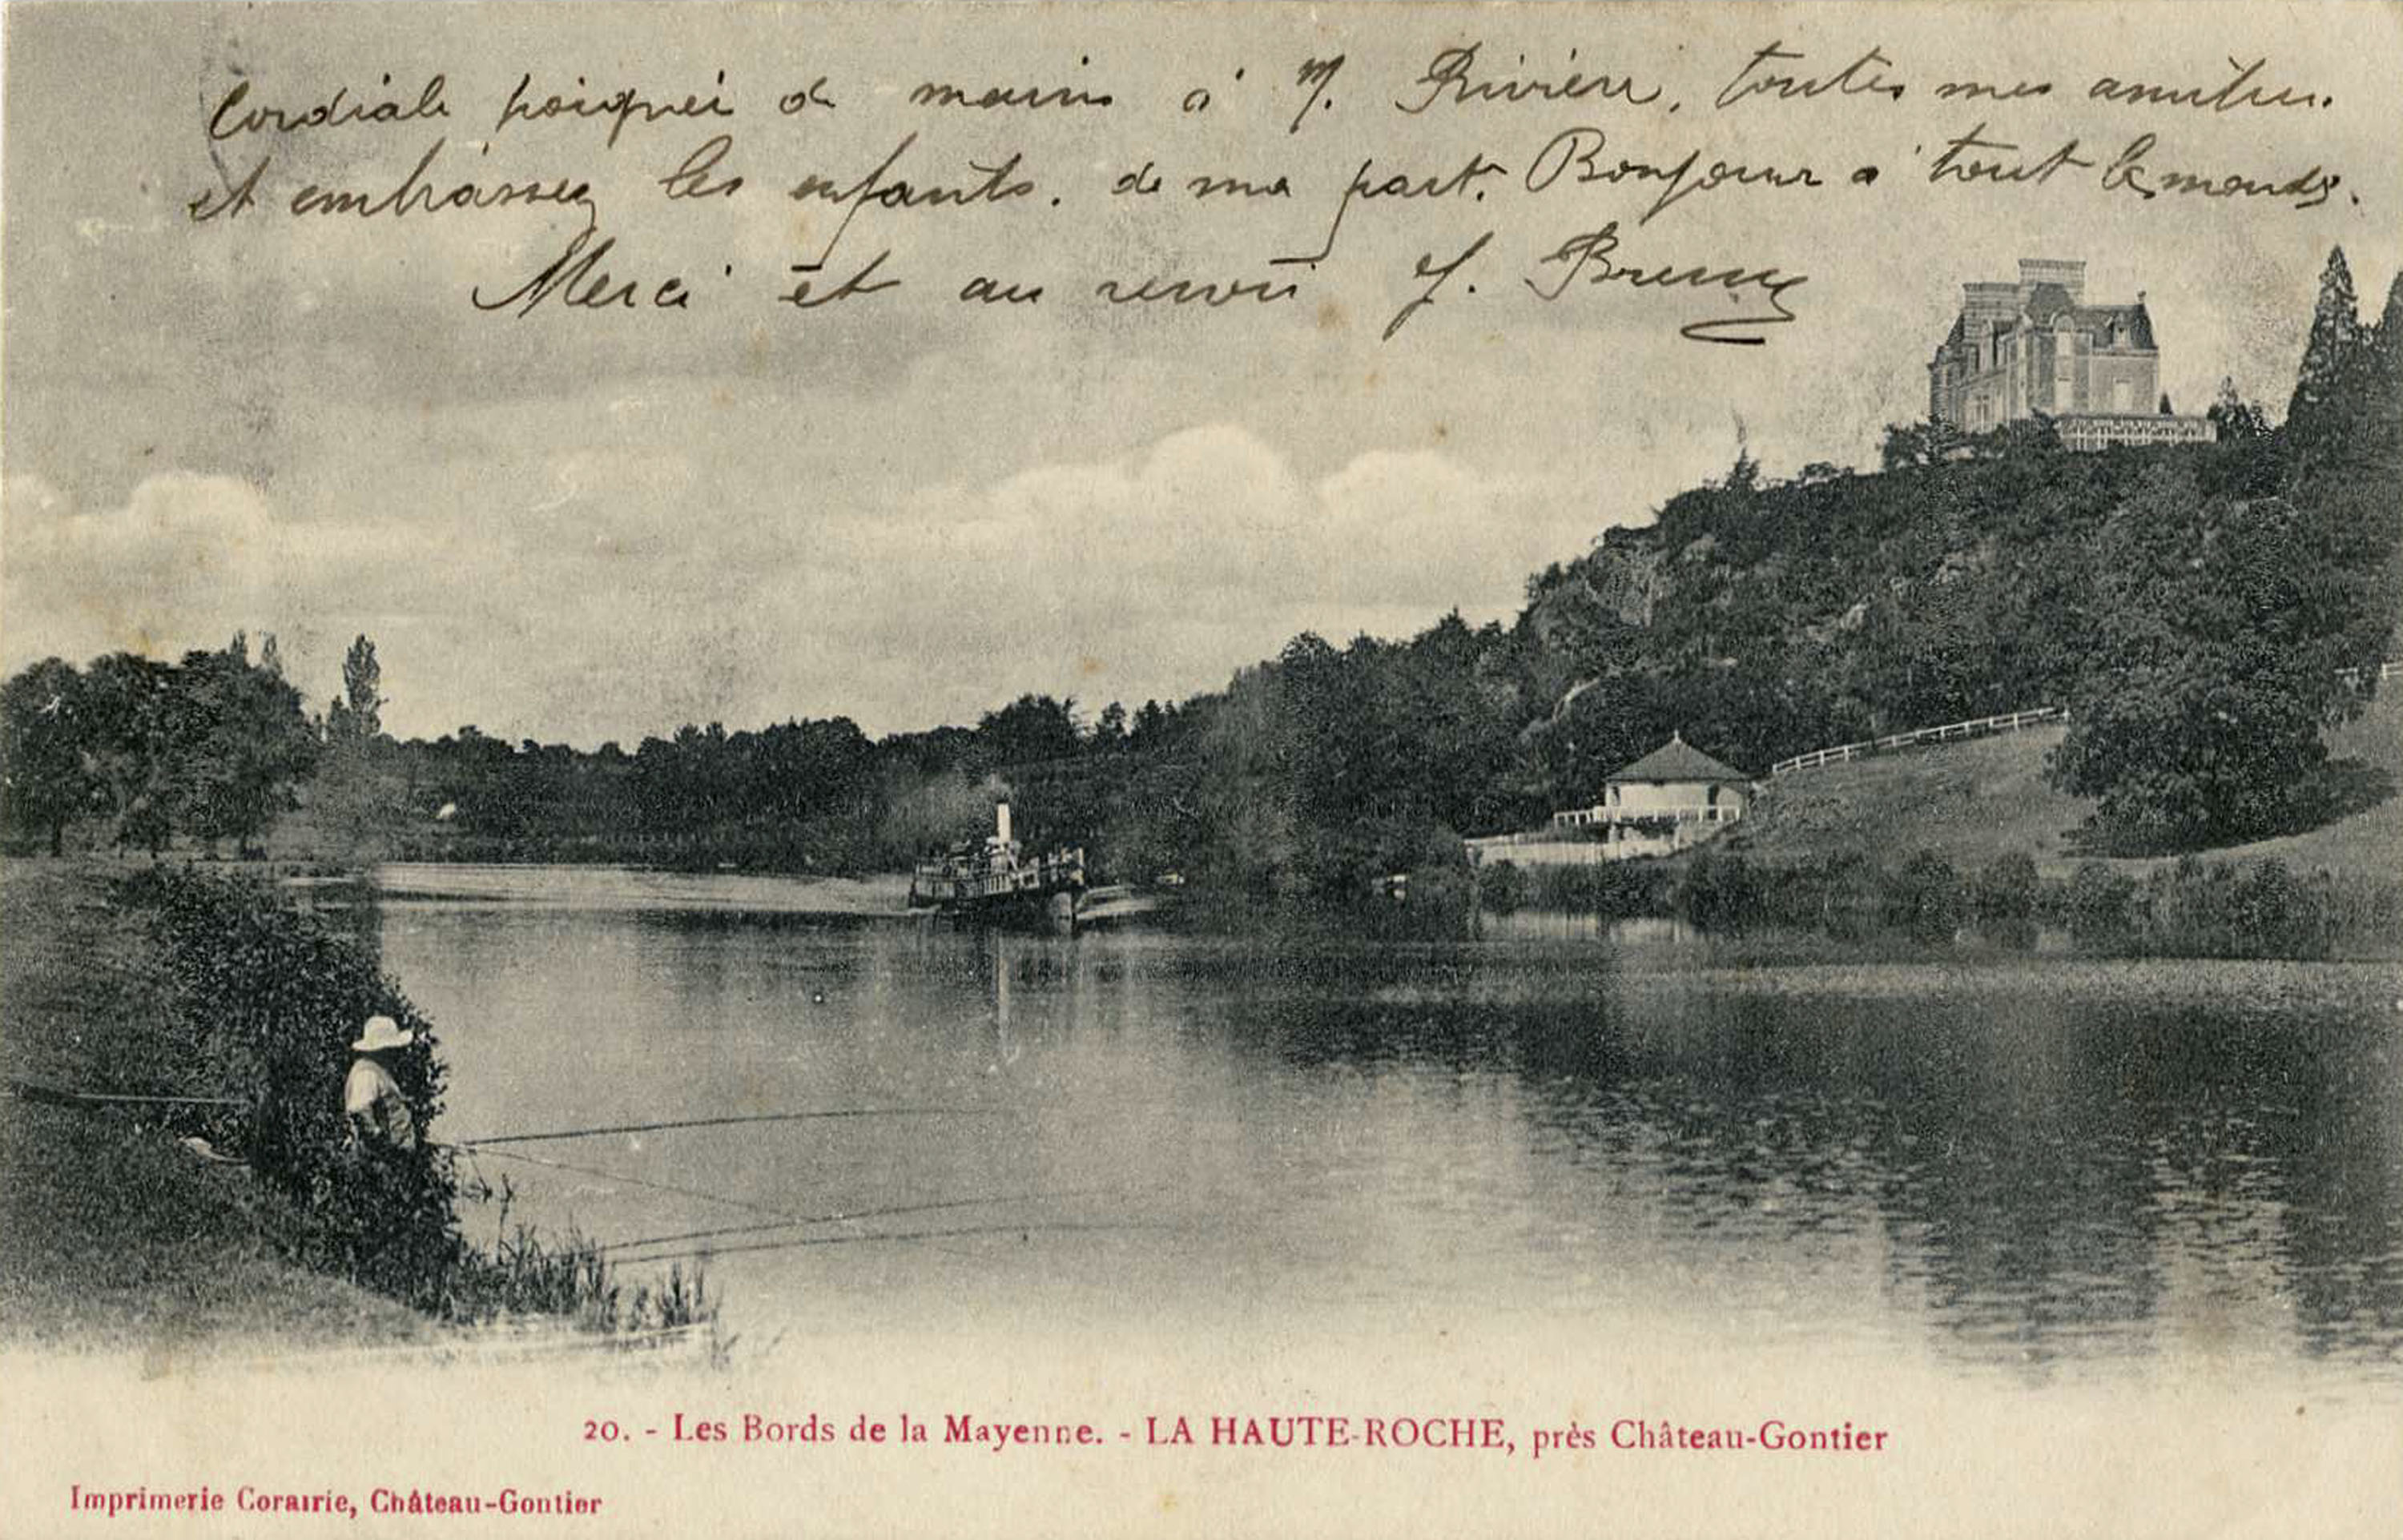 Cordiale poignée de mains à M. Rivière, toutes mes amitiés
et embrassez les enfants. de ma part. Bonjour à tout le monde.
Merci et au revoir J.
20. - Les Bords de la Mayenne. - LA HAUTE-ROCHE, près Château-Gontier
Imprimerie Corairie, Château-Gontier